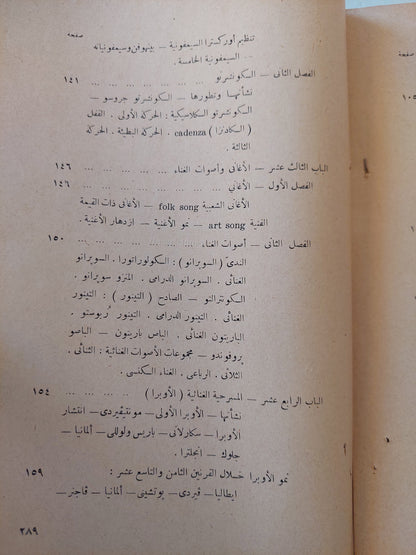 صفحة
تنظيم أوركسترا السيمفونية — بيتهوفن وسيمفونياته
— السيمفونية الخامسة .
الفصل الثانى — الكونشرتو ... ... ... ... ... ١٤١
نشأتها وتطورها — الكونشرتو جروسو —
الكونشرتو الكلاسيكية : الحركة الأولى . القفل
( الكادنزا ) cadenza . الحركة البطيئة . الحركة
الثالثة .
الباب الثالث عشر — الأغانى وأصوات الغناء ... ... ... ١٤٦
الفصل الأول — الأغاني ... ... ... ... ... ... ١٤٦
الأغانى الشعبية folk song — الأغانى ذات القيمة
الفنية art song — نمو الأغنية — ازدهار الأغنية .
الفصل الثانى — أصوات الغناء ... ... ... ... ... ١٥٠
الندىّ ( السوبرانو ) : الكولوراتورا . السوبرانو
الغنائى . السوبرانو الدرامى . المتزو سوبرانو .
الكونترالتو — الصادح ( التينور ) : التينور
الغنائى . التينور الدرامى . التينور رُبوستو .
الباريتون الغنائى . الباس باريتون — الباصو
بروفوندو — مجموعات الأصوات الغنائية : الثنائى .
الثلاثى . الرباعى . الغناء السكستى .
الباب الرابع عشر — المسرحية الغنائية ( الأوبرا ) ... ... ... ١٥٤
نشأتها — الأوبرا الأولى — مونتڤيردى — انتشار
الأوبرا — سكارلاتى — باريس ولوللى — ألمانيا —
جلوك — انجلترا .
نمو الأوبرا خلال القرنين الثامن والتاسع عشر : ١٥٩
ايطاليا — ڤيردى — بوتشينى — ألمانيا — ڤاجنر —
٢٨٩
صفحة
١٠٥